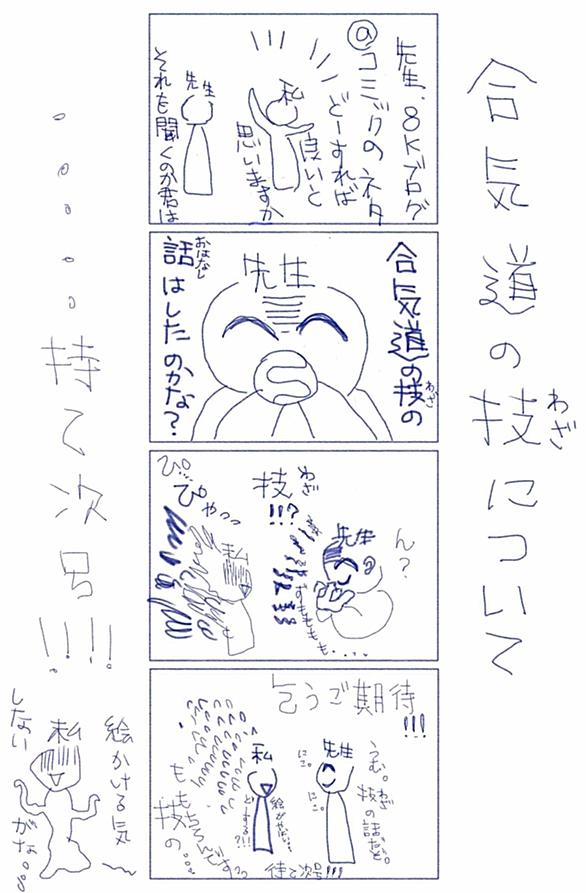 合気道の技について
わざ
先生、8Kブログ
@コミックのネタ
どーすれば
良いと
思いますか
私
先生
それを聞くのか君は
合気道の技の
わざ
先生
話はしたのかな?
おはなし
ん?
先生
技
わざ
!!?
ももももも....
私
ぴ...
ぴゃっっ
乞うご期待
!!!
うむ。
技の話だぞ。
わざ
先生
にこ。
にこ。
私
もちろんですっっ
技の...
待て次号!!!
......待て次号!!!!
絵かける気
私
しない
がな...